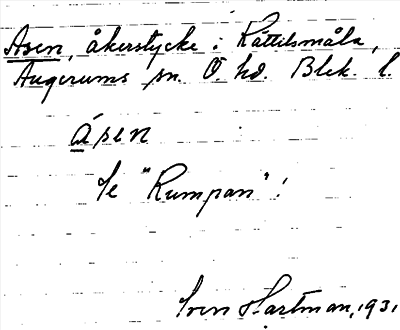 Åsen, åkerstycke i Kättilsmåla,
Augerums sn. Ö. hd. Blek. l.
åsen
Se "Rumpan"!
Sven Hartman, 1931